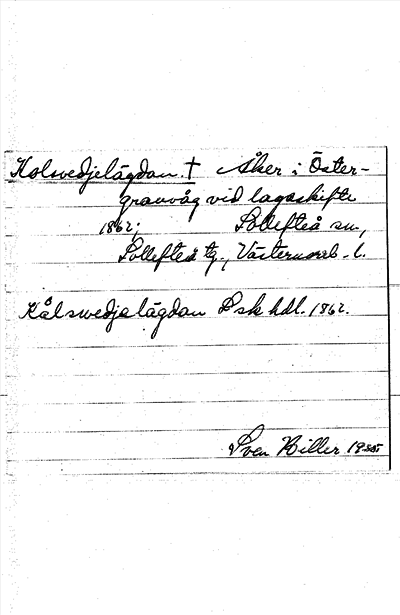 Kolsvedjelägdan. † Åker i Öster-
granvåg vid lagaskifte
1862; Sollefteå sn.,
Sollefteå tg., Västernorrl. l.
Kålswedjelägdan Lsk hdl. 1862.
Sven Killer